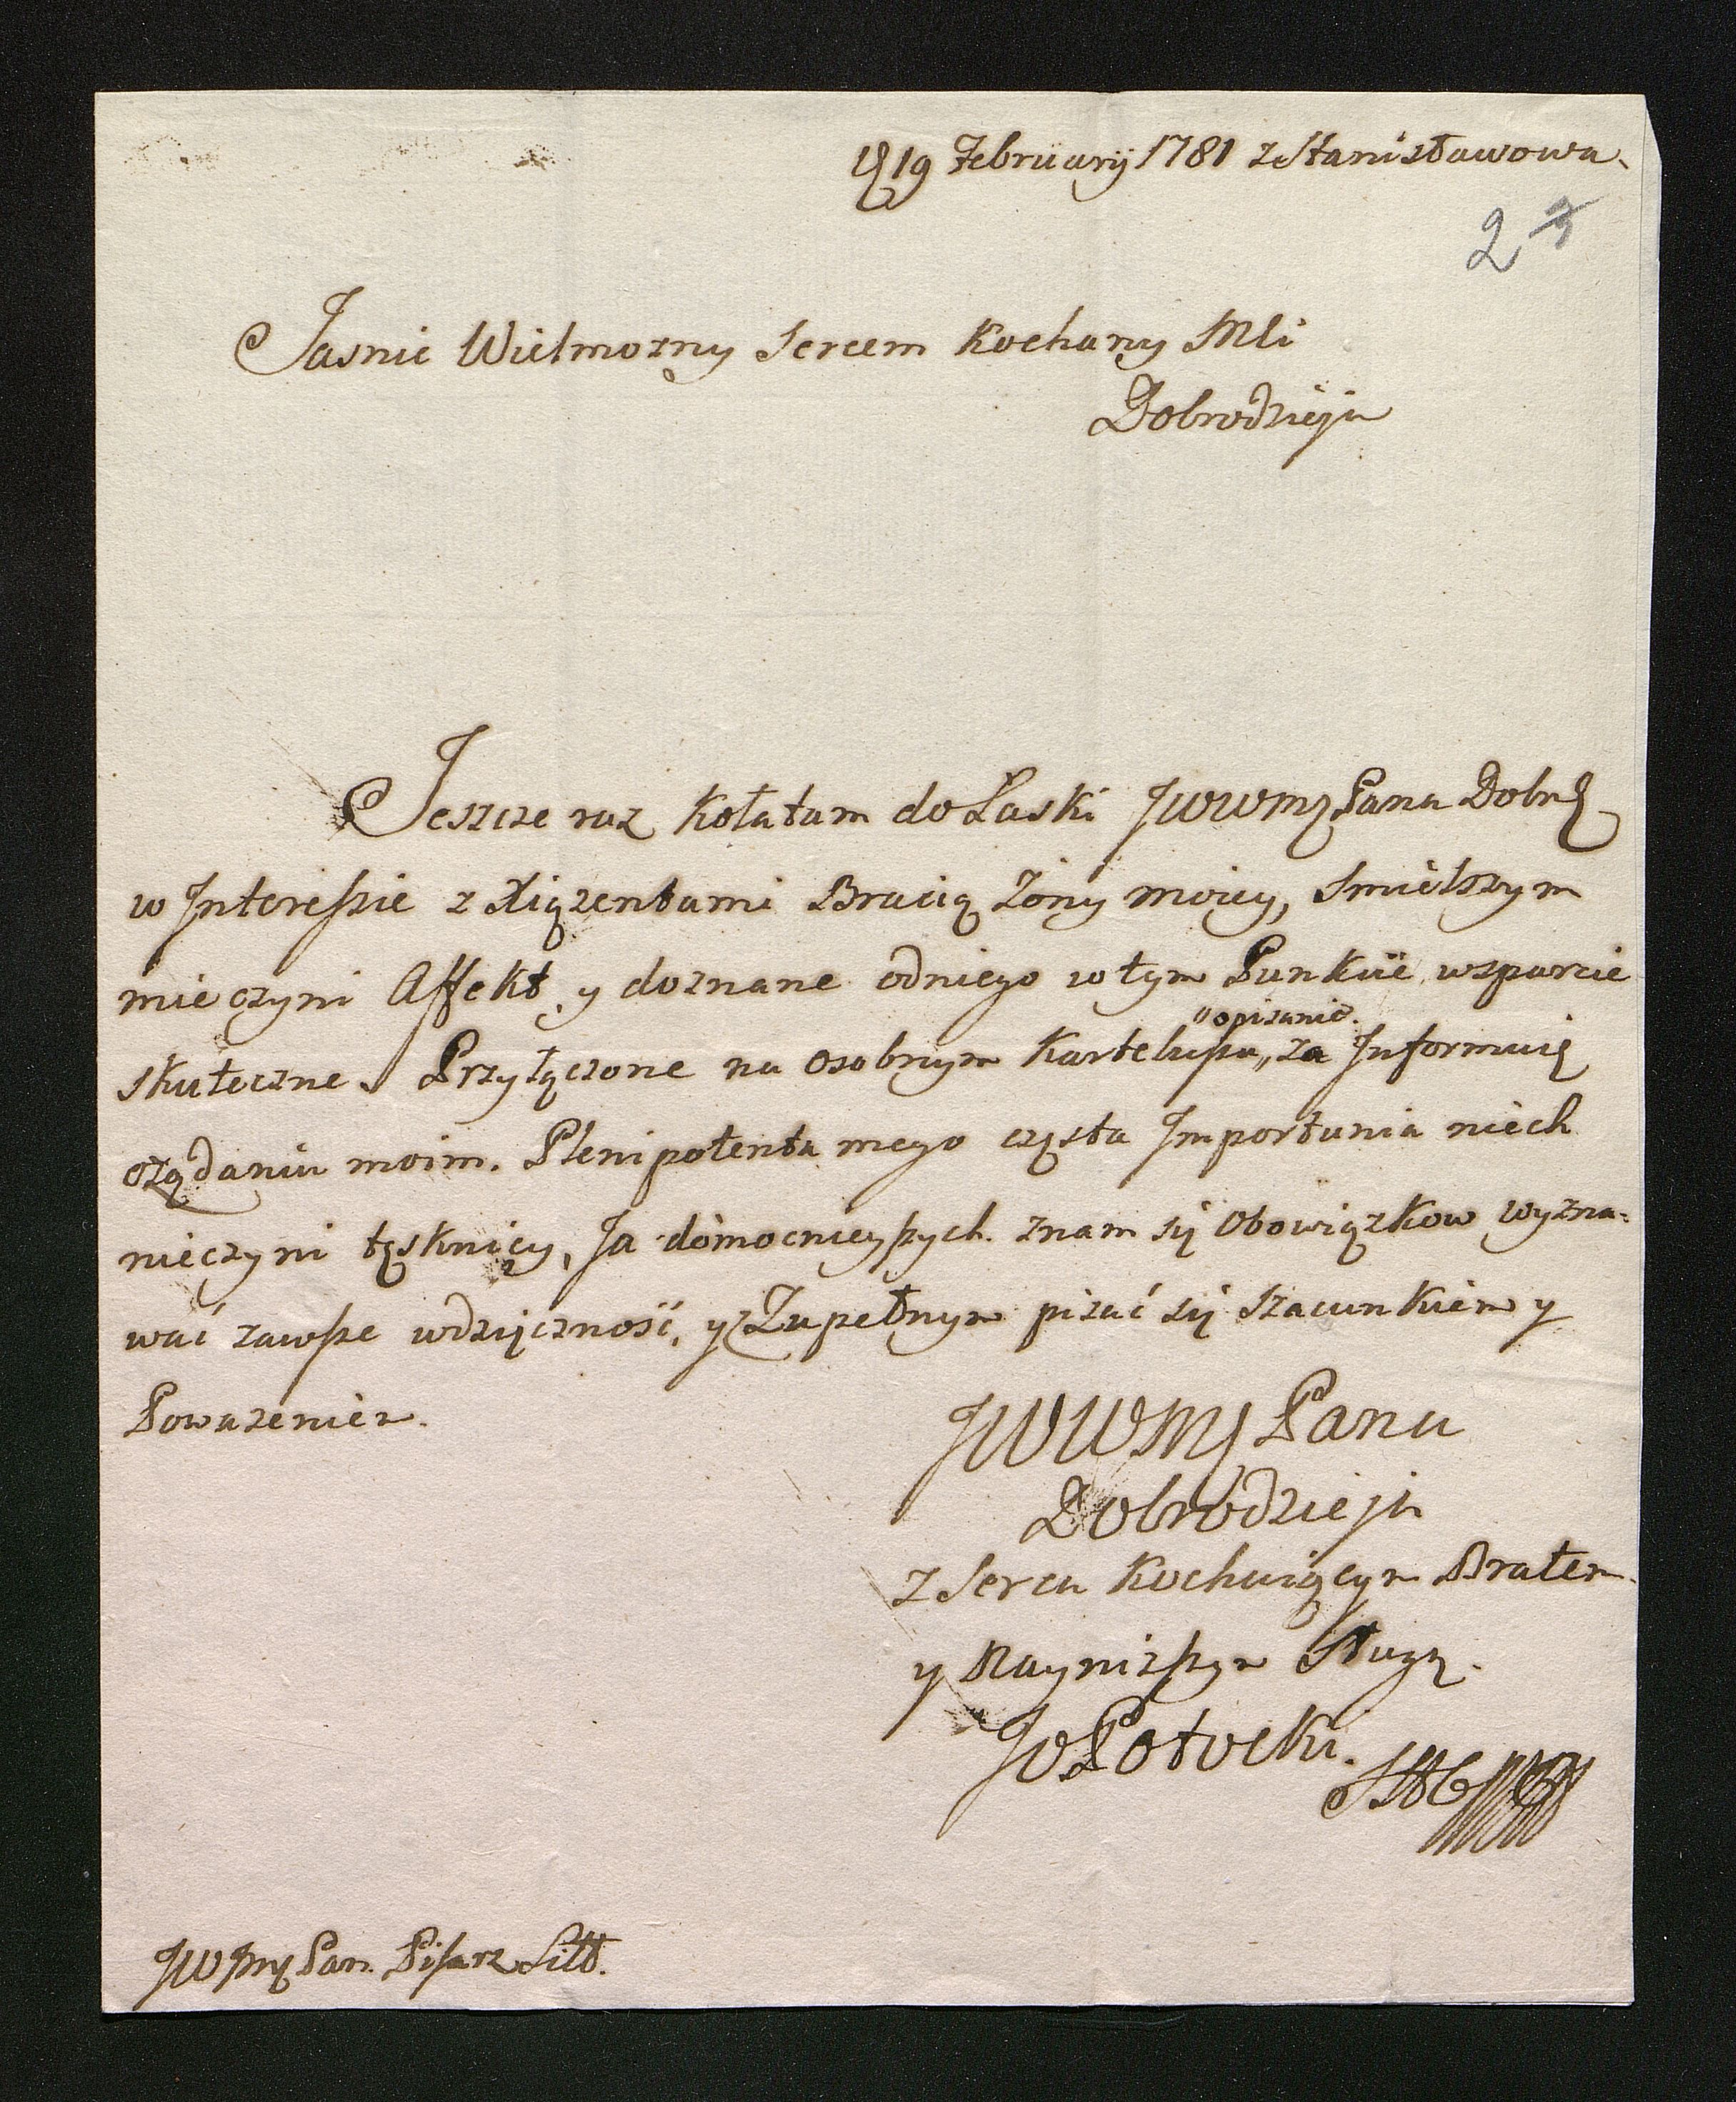 19 February 1781 z Stanisławowa.
2 3
Jasnie Wielmozny Sercem Kochany Mśi
Dobrodzieju
Jeszcze raz Kołatam do Łaski JWWMP Pana Dobr
w Interessie z Xiązentami Bracią Zony moiey, smielszym
mie czyni Affekt y doznane odniego w tym Punkcie wsparcie
opisanie.
skuteczne. Przyłączone na osobnym Karteluszu, za Informuię
o ządaniu moim. Plenipotenta mego częsta Importunia niech
nieczyni tęsknicy, Ja domocnieyszych znam się Obowiązkow wyzna=
wać zawsze wdzięczność, y Zupełnym pisać się szacunkiem y
Powazeniem.
JWWMP Pana
Dobrodzieja
z Serca Kochaiącym Bratem
y Nayniszym Sługą.
JPotocki.
JW Pan Pisarz Litt.